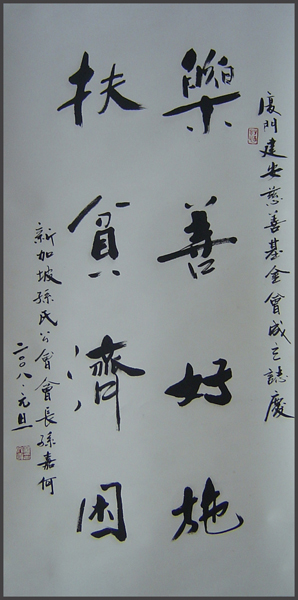 廈門建安慈善基金會成立誌慶
樂善好施
扶貧濟困
新加坡孫氏公會會長孫嘉何
二〇〇八元旦